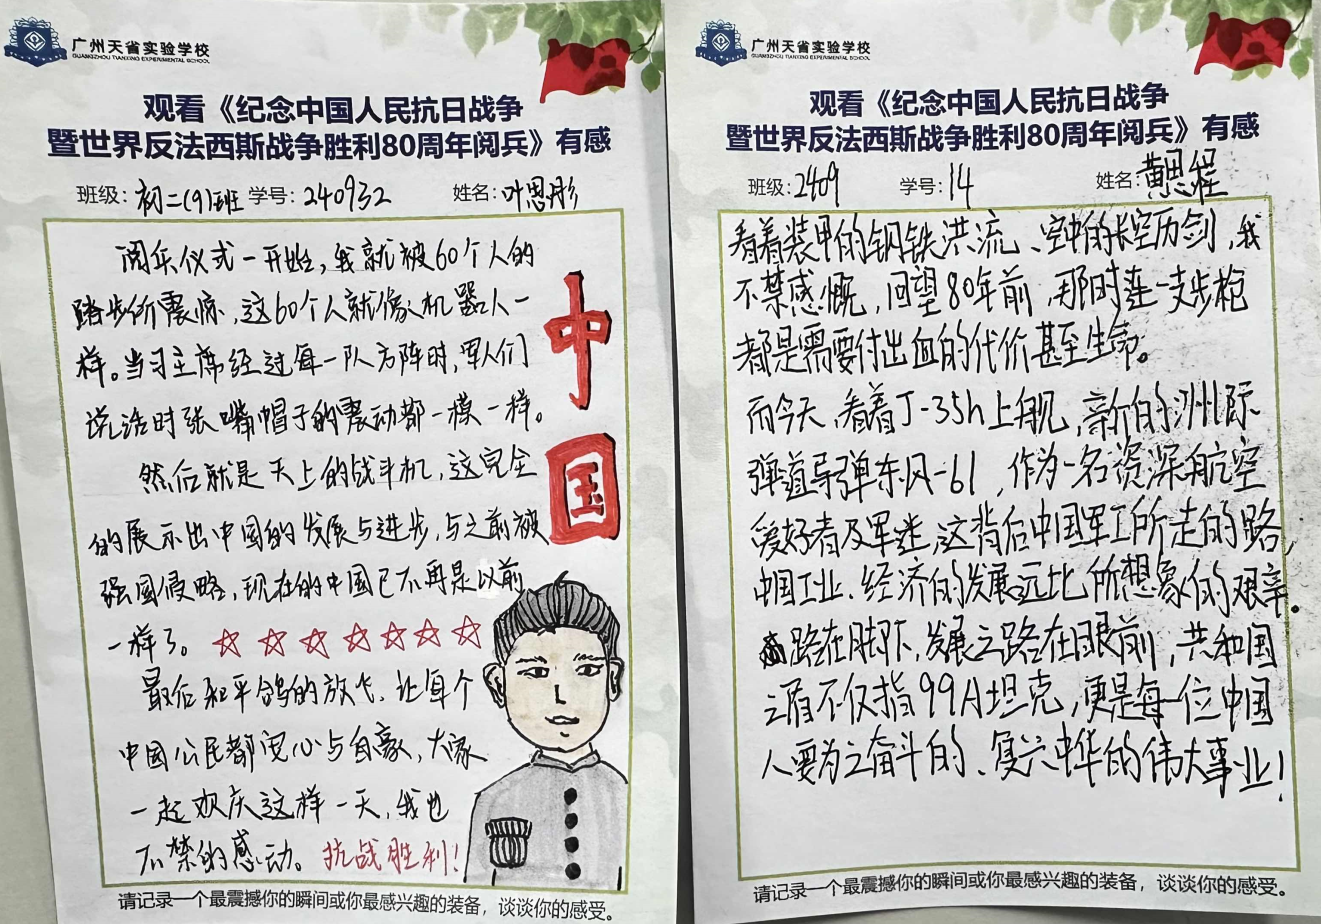 广州天省实验学校
GUANGZHOU TIANXING EXPERIMENTAL SCHOOL
观看《纪念中国人民抗日战争
暨世界反法西斯战争胜利80周年阅兵》有感
班级：初二(9)班 学号：240932 姓名：叶思彤
阅兵仪式一开始，我就被60个人的
踏步所震惊，这60个人就像机器人一
样。当习主席经过每一队方阵时，军人们
说话时张嘴帽子的震动都一模一样。
然后就是天上的战斗机，这完全
的展示出中国的发展与进步，与之前被
强国侵略，现在的中国已不再是以前
一样了。
最后和平鸽的放飞，让每个
中国公民都安心与自豪，大家
一起欢庆这样一天，我也
不禁的感动。抗战胜利！
中
国
请记录一个最震撼你的瞬间或你最感兴趣的装备，谈谈你的感受。
广州天省实验学校
GUANGZHOU TIANXING EXPERIMENTAL SCHOOL
观看《纪念中国人民抗日战争
暨世界反法西斯战争胜利80周年阅兵》有感
班级：2409 学号：14 姓名：黄思程
看着装甲的钢铁洪流、空中的长空历剑，我
不禁感慨，回望80年前，那时连一支步枪
都是需要付出血的代价甚至生命。
而今天，看着J-35h上舰，崭新的洲际
弹道导弹东风-61，作为一名资深航空
爱好者及军迷，这背后中国军工所走的路，
中国工业、经济的发展远比所想象的艰辛。
路在脚下，发展之路在眼前，共和国
之盾不仅指99A坦克，更是每一位中国
人要为之奋斗的、复兴中华的伟大事业！
请记录一个最震撼你的瞬间或你最感兴趣的装备，谈谈你的感受。